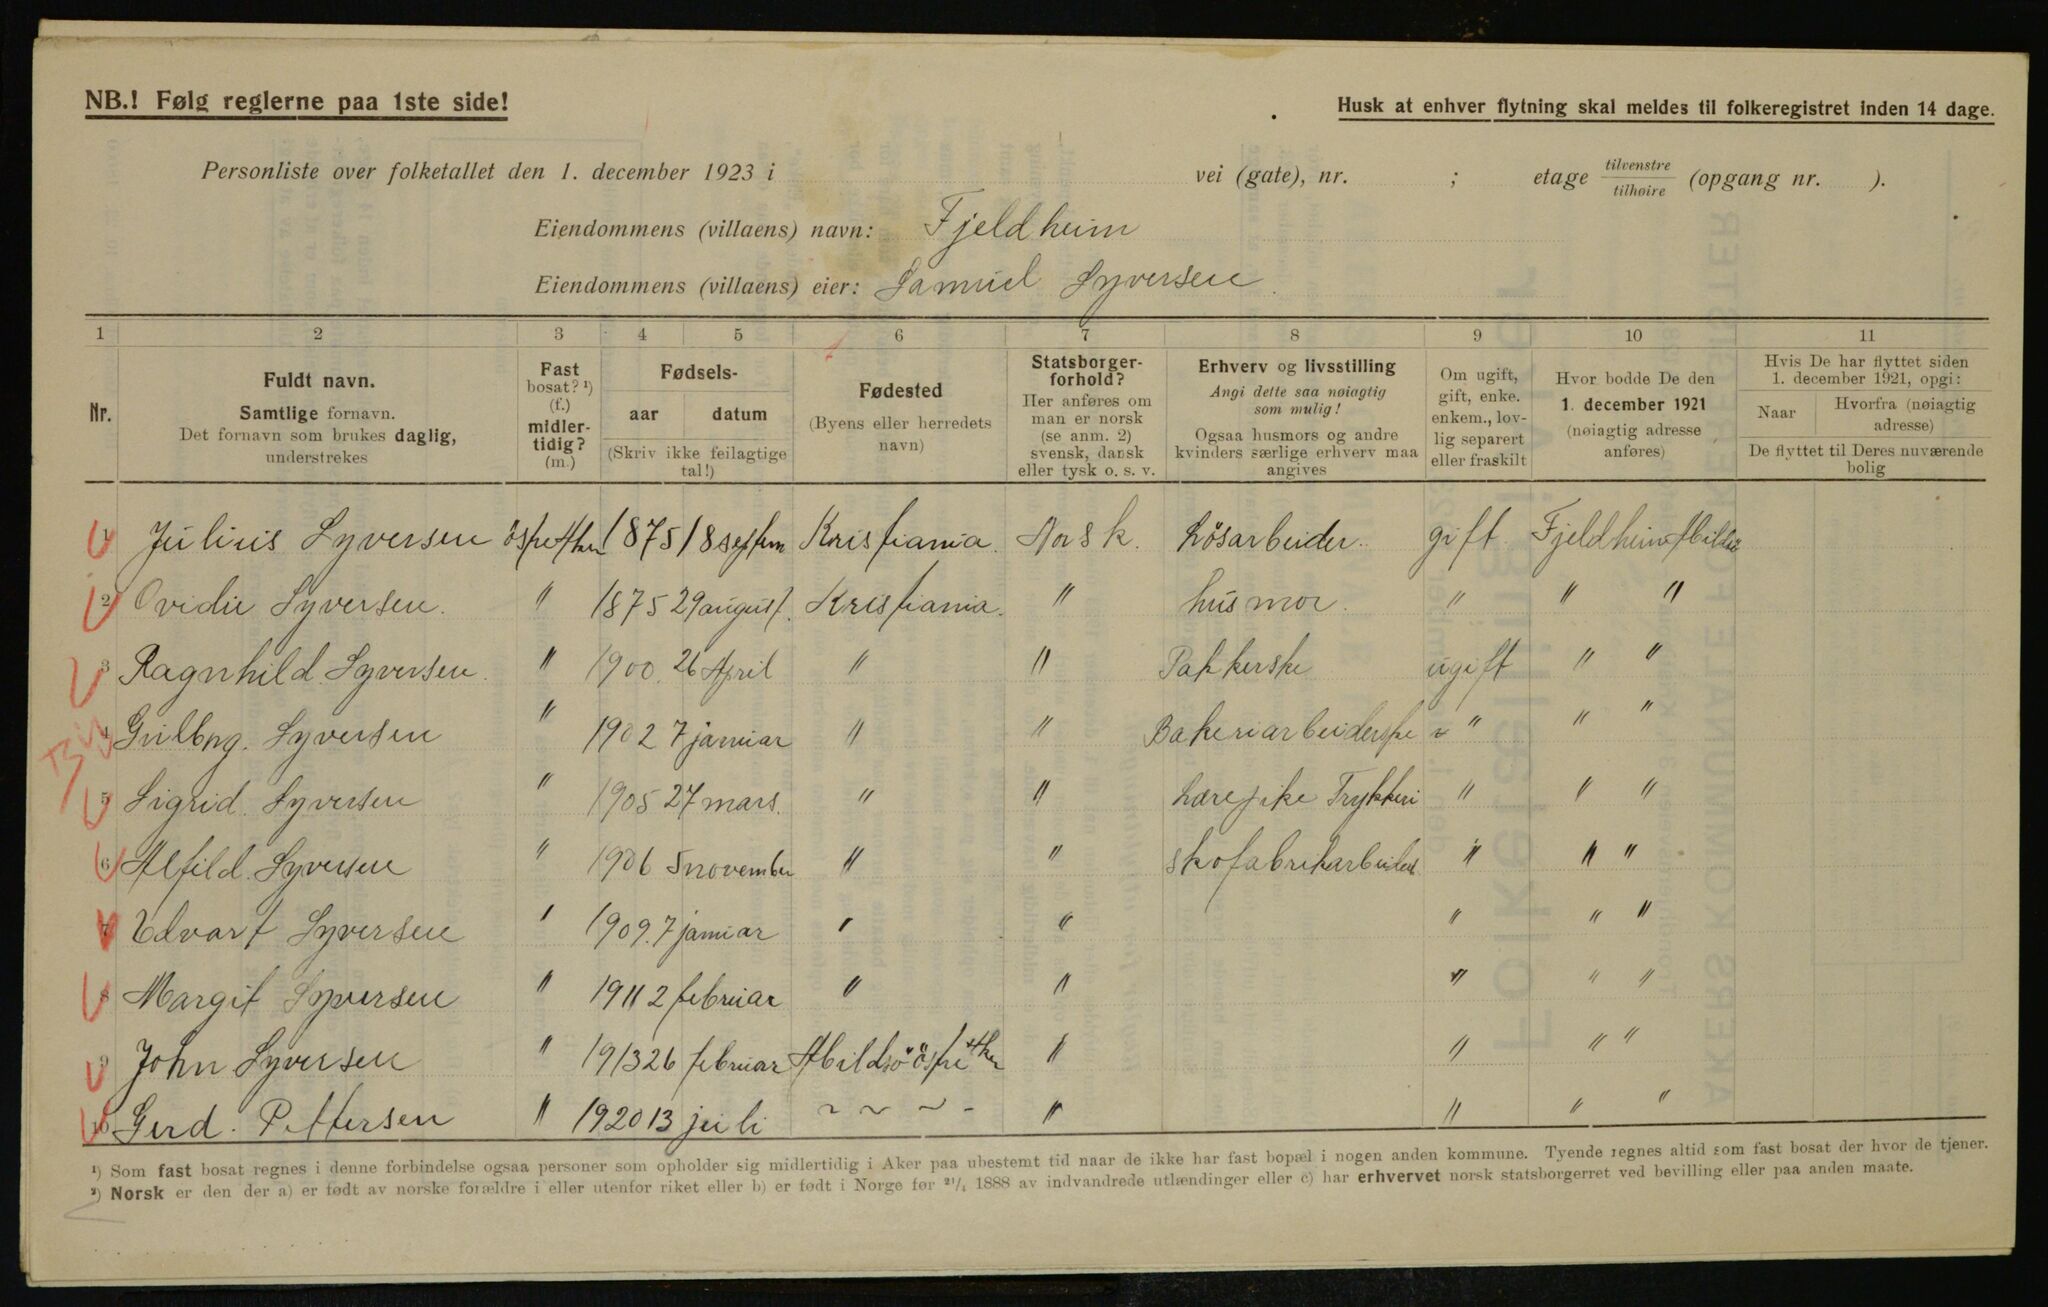 NB.! Følg reglerne paa 1ste side!
Husk at enhver flytning skal meldes til folkeregistret inden 14 dage.
Personliste over folketallet den 1. december 1923 i vei (gate), nr. ; etage tilvenstre/tilhøire (opgang nr. ).
Eiendommens (villaens) navn: Fjeldheim
Eiendommens (villaens) eier: Samuel Syversen
1 2 3 4 5 6 7 8 9 10 11
Nr.
Fuldt navn.
Samtlige fornavn.
Det fornavn som brukes daglig,
understrekes
Fast
bosat? ¹)
(f.)
midler-
tidig?
(m.)
Fødsels-
aar datum
(Skriv ikke feilagtige
tal!)
Fødested
(Byens eller herredets
navn)
Statsborger-
forhold?
Her anføres om
man er norsk
(se anm. 2)
svensk, dansk
eller tysk o. s. v.
Erhverv og livsstilling
Angi dette saa nøiagtig
som mulig!
Ogsaa husmors og andre
kvinders særlige erhverv maa
angives
Om ugift,
gift, enke.
enkem., lov-
lig separert
eller fraskilt
Hvor bodde De den
1. december 1921
(nøiagtig adresse
anføres)
Hvis De har flyttet siden
1. december 1921, opgi:
Naar
Hvorfra (nøiagtig
adresse)
De flyttet til Deres nuværende
bolig
1 Julius Syversen 1875 18 septem Kristiania. Norsk. Løsarbeider. gift. Fjeldheim Abildsö
2 Ovidie Syversen. " 1875 29 august. Kristiania. " husmor. " " "
3 Ragnhild Syversen. " 1900. 26 April " " Pakkerske ugift " "
4 Syversen " 1902 7 januar " " Bakeriarbeiderske " " "
5 Sigrid. Syversen " 1905 27 mars. " " Trykkeri " " "
6 Alfild. Syversen " 1906 5 november " " skofabrikarbeiders " " "
7 Edvart Syversen ' 1909. 7 januar " " " " "
8 Margit Syversen " 1911 2 februar " " " " "
9 John Syversen " 1913 26 februar Abildsö " " " "
10 Gerd. Pettersen " 1920 13 juli ~ ~ ~ - " " " "
¹) Som fast bosat regnes i denne forbindelse ogsaa personer som opholder sig midlertidig i Aker paa ubestemt tid naar de ikke har fast bopæl i nogen anden kommune. Tyende regnes altid som fast bosat der hvor de tjener.
²) Norsk er den der a) er født av norske forældre i eller utenfor riket eller b) er født i Norge før ²¹/₄ 1888 av indvandrede utlændinger eller c) har erhvervet norsk statsborgerret ved bevilling eller paa anden maate.